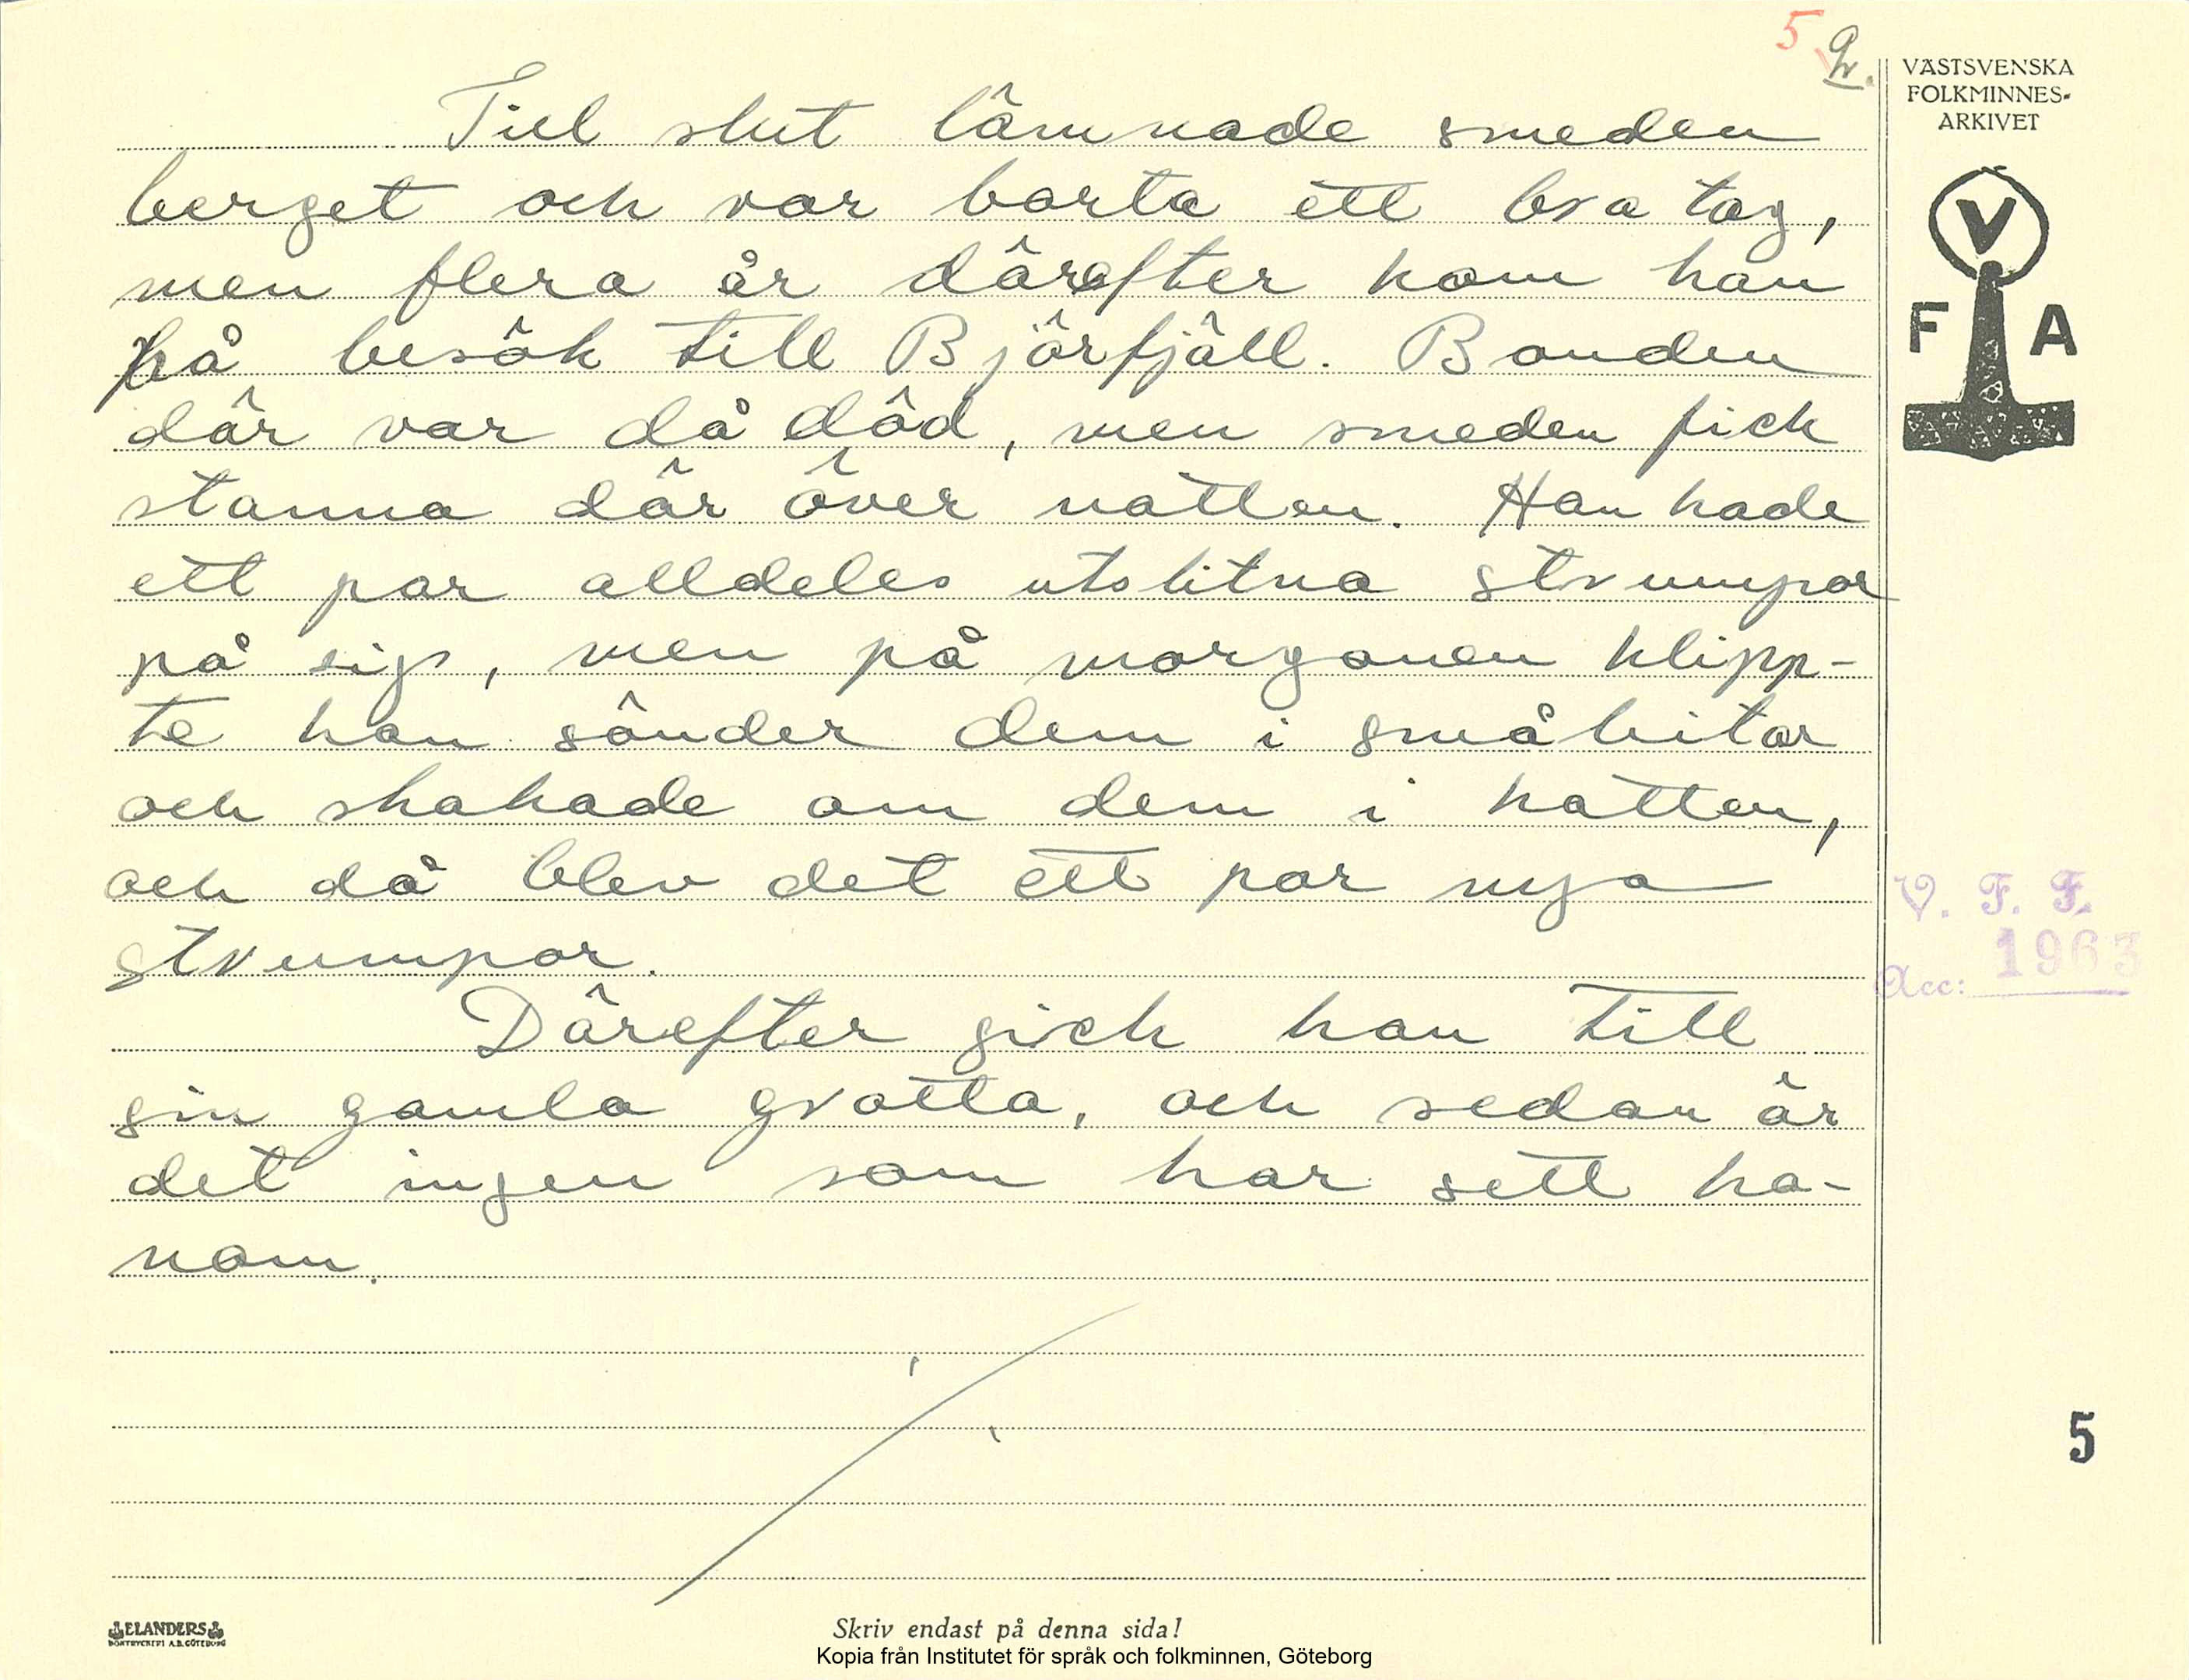 5
VÄSTSVENSKA
FOLKMINNES-
ARKIVET
V
F A
Till slut lämnade smeden
berget och var borta ett bra tag,
men flera år därefter kom han
på besök till Björfjäll. Bonden
där var då död, men smeden fick
stanna där över natten. Han hade
ett par alldeles utslitna strumpor
på sig, men på morgonen klipp-
te han sönder dem i småbitar
och skakade om dem i hatten,
och då blev det ett par nya
strumpor.
Därefter gick han till
sin gamla grotta, och sedan är
det ingen som har sett ho-
nom.
V. F. F.
Acc: 1963
5
ELANDERS
BOKTRYCKERI A.B. GÖTEBORG
Skriv endast på denna sida!
Kopia från Institutet för språk och folkminnen, Göteborg